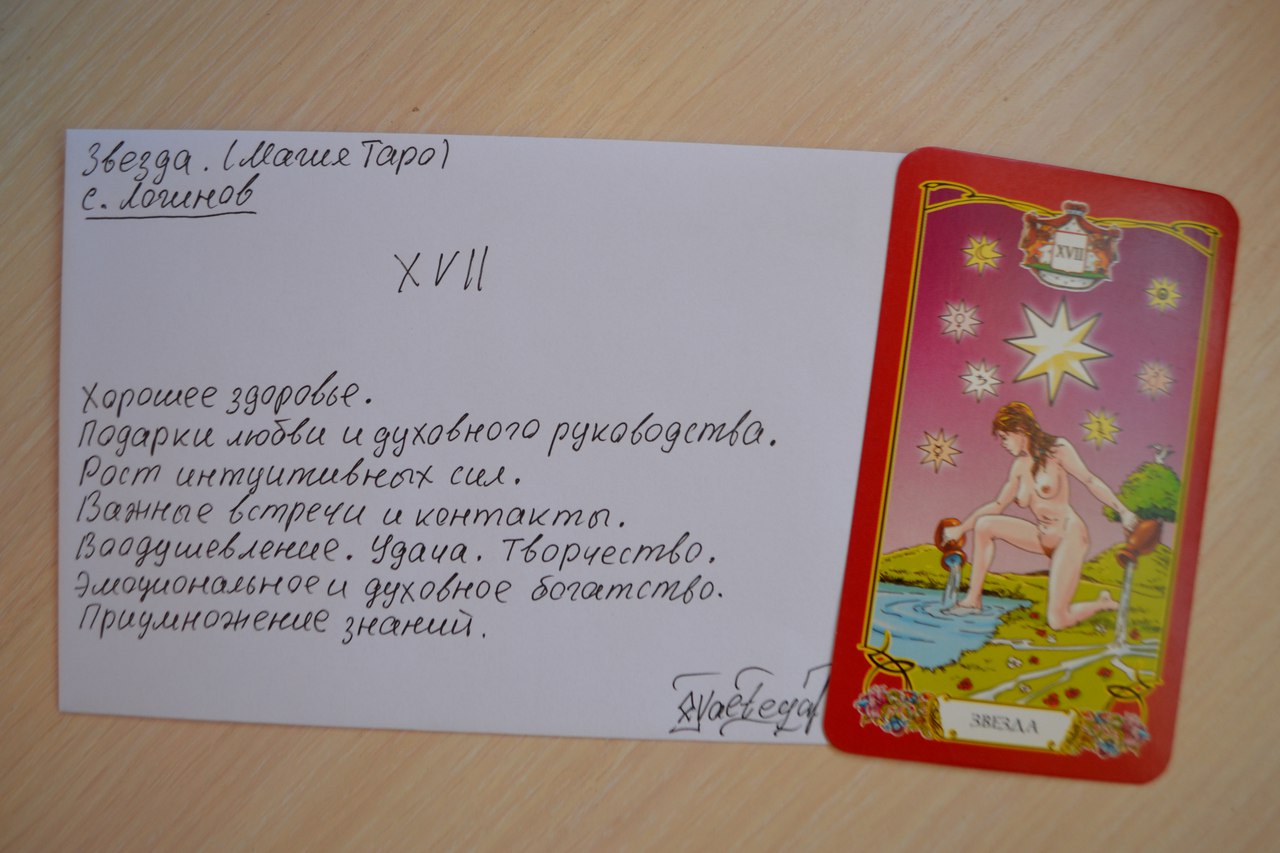 Звезда. (Магия Таро)
С. Логинов
XVII
Хорошее здоровье.
Подарки любви и духовного руководства.
Рост интуитивных сил.
Важные встречи и контакты.
Воодушевление. Удача. Творчество.
Эмоциональное и духовное богатство.
Приумножение знаний.
XVII
ЗВЕЗДА